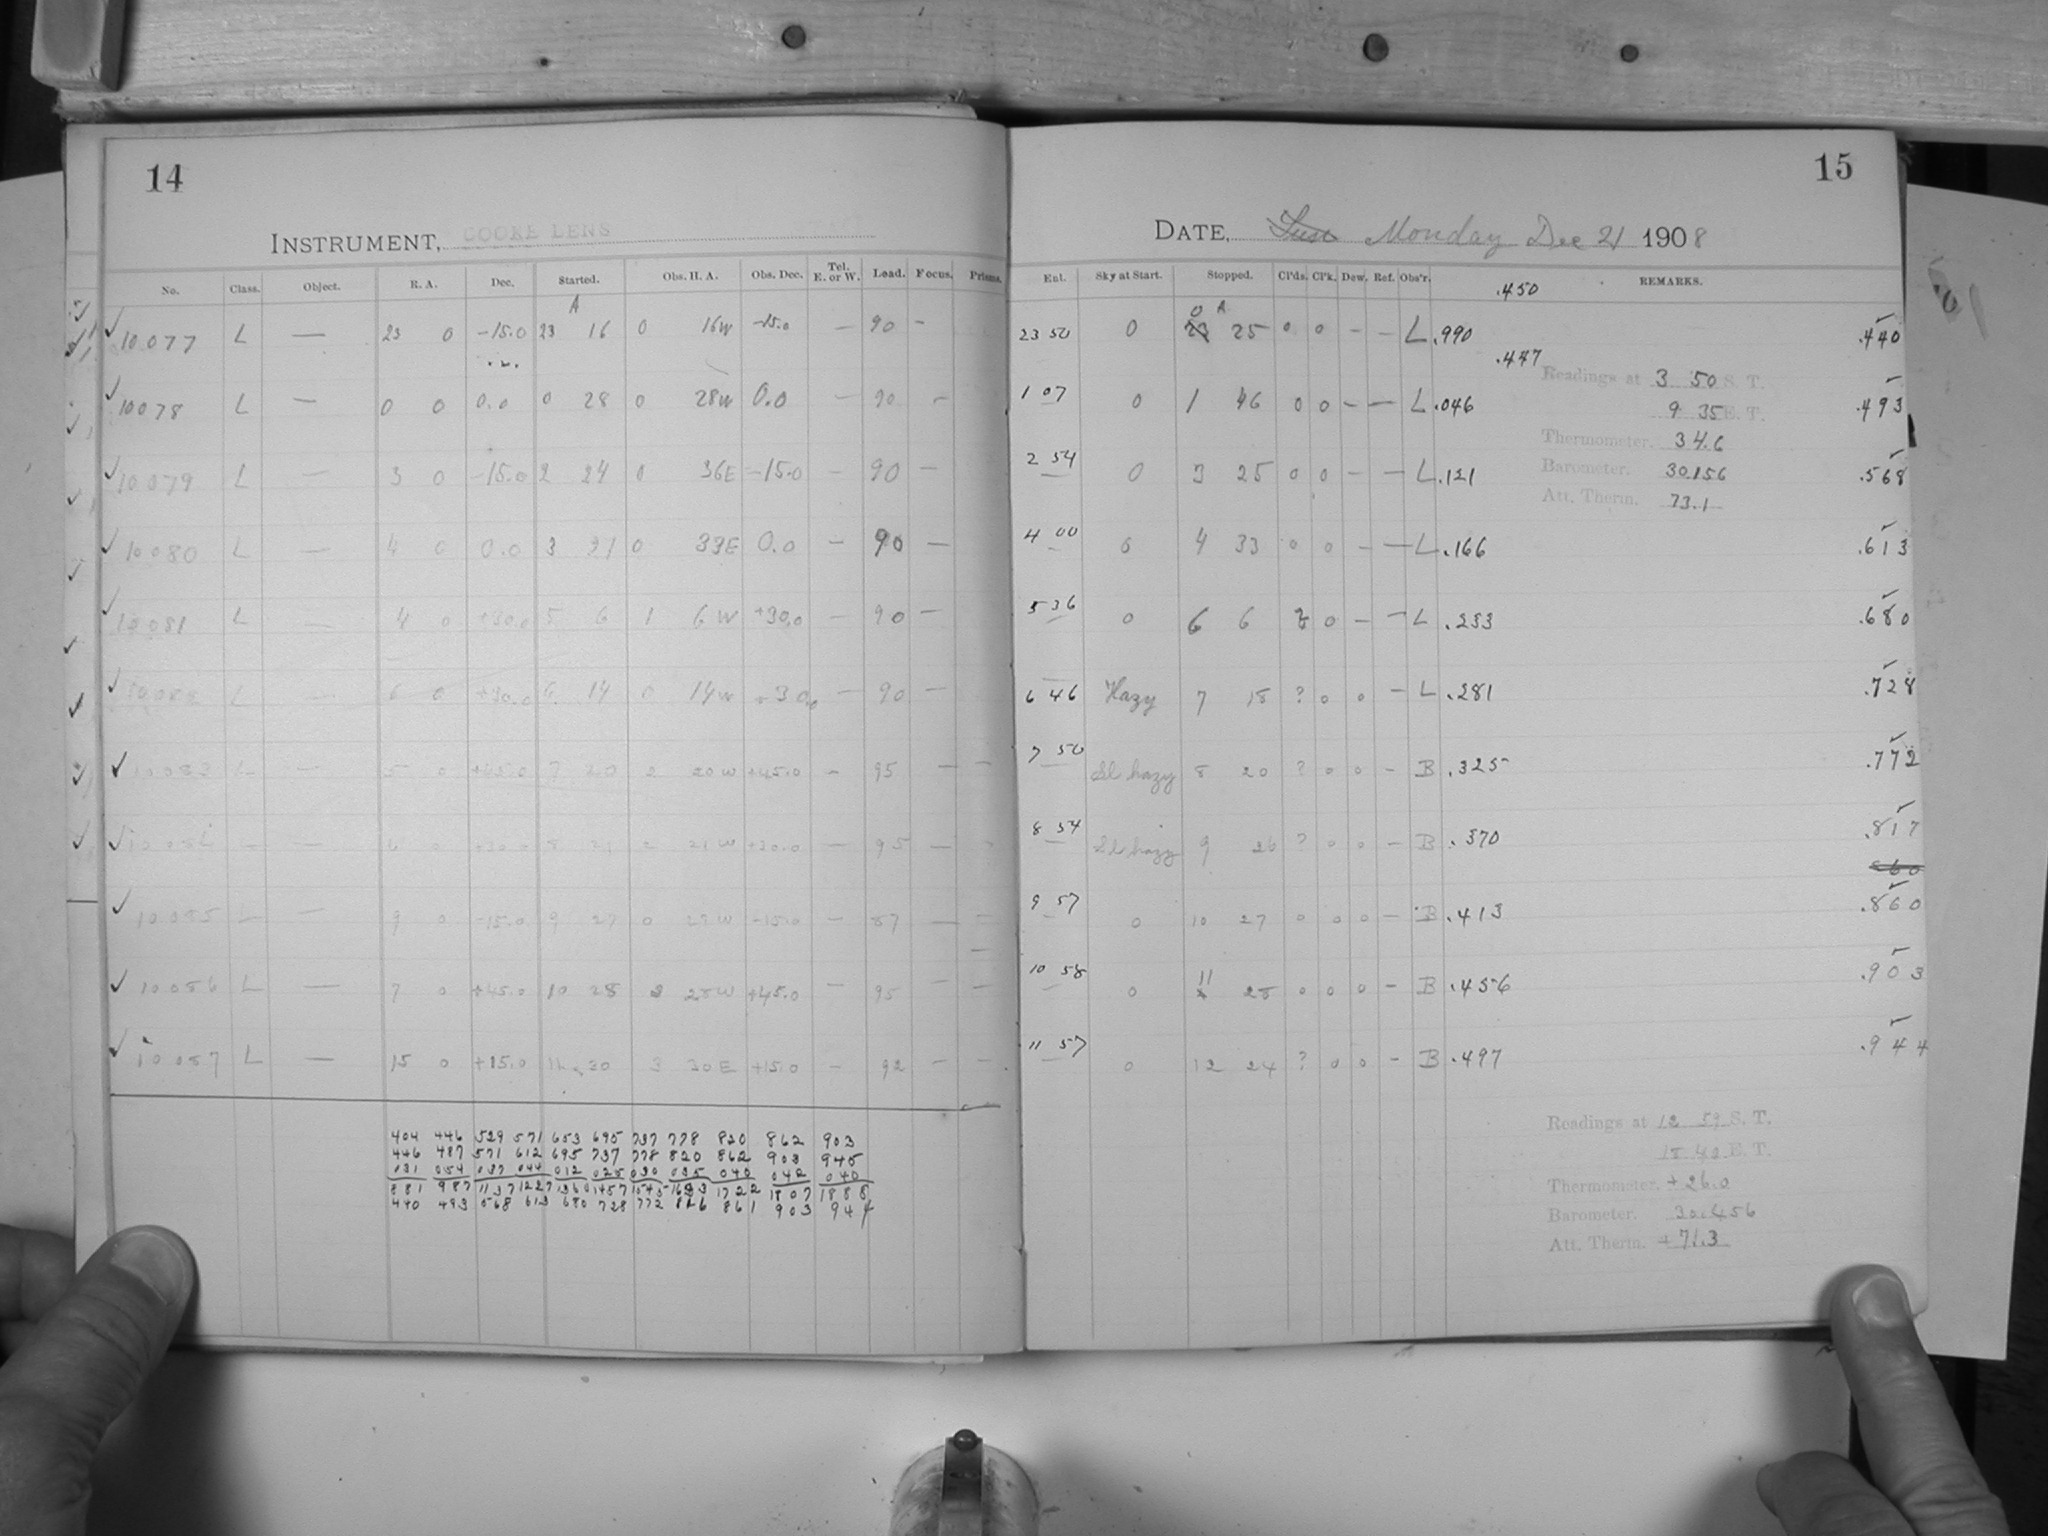 14
INSTRUMENT, COOKE LENS
No. Class. Object. R. A. Dec. Started. Obs. H. A. Obs. Dec. Tel. E. or W. Lead. Focus. Prisms.
A
10077 L — 23 0 -15.0 23 16 0 16W -15.0 — 90 -
10078 L — 0 0 0.0 0 28 0 28W 0.0 — 90 -
10079 L — 3 0 -15.0 2 24 0 36E -15.0 — 90 —
10080 L — 4 0 0.0 3 0 33E 0.0 — 90 —
10081 L — 4 0 +30.0 5 6 1 6W +30.0 — 90 —
L — 6 0 +30.0 6 14 0 14W +30.0 — 90 —
10083 L — 5 0 +45.0 7 20 2 20W +45.0 — 95 — —
— 6 0 +30.0 8 21 2 21W +30.0 — 95 — —
10085 L — 9 0 -15.0 9 27 0 27W -15.0 — 87 — —
10086 L — 7 0 +45.0 10 28 3 28W +45.0 — 95 — —
10087 L — 15 0 +15.0 11 30 3 30E +15.0 — 92 — —
404 446 529 571 653 695 737 778 820 862 903
446 487 571 612 695 737 778 820 862 903 945
031 054 037 044 012 025 030 035 040 042 040
881 987 1137 1227 1360 1457 1545 1633 1722 1807 1888
440 493 568 613 680 728 772 816 861 903 944
15
DATE, Monday Dec 21 1908
Ent. Sky at Start. Stopped. Cl'ds. Cl'k. Dew. Ref. Obs'r. REMARKS.
.450
0 A
23 50 0 23 25 0 0 — — L .990 .440
.447
Readings at 3 50 S. T.
1 07 0 1 46 0 0 — — L .046 .493
9 35 E. T.
Thermometer. 34.6
2 54 0 3 25 0 0 — — L .121 .568
Barometer. 30.156
Att. Therm. 73.1
4 00 0 4 33 0 0 — — L .166 .613
5 36 0 6 6 0 — — L .233 .680
6 46 Hazy 7 18 ? 0 0 — L .281 .728
7 50 Sl hazy 8 20 ? 0 0 — B .325 .772
8 54 Sl hazy 9 26 ? 0 0 — B .370 .817
860
9 57 0 10 27 0 0 0 — B .413 .860
10 58 0 11 28 0 0 0 — B .456 .903
11 57 0 12 24 ? 0 0 — B .497 .944
Readings at 12 59 S. T.
18 40 E. T.
Thermometer. +26.0
Barometer. 30.456
Att. Therm. +71.3